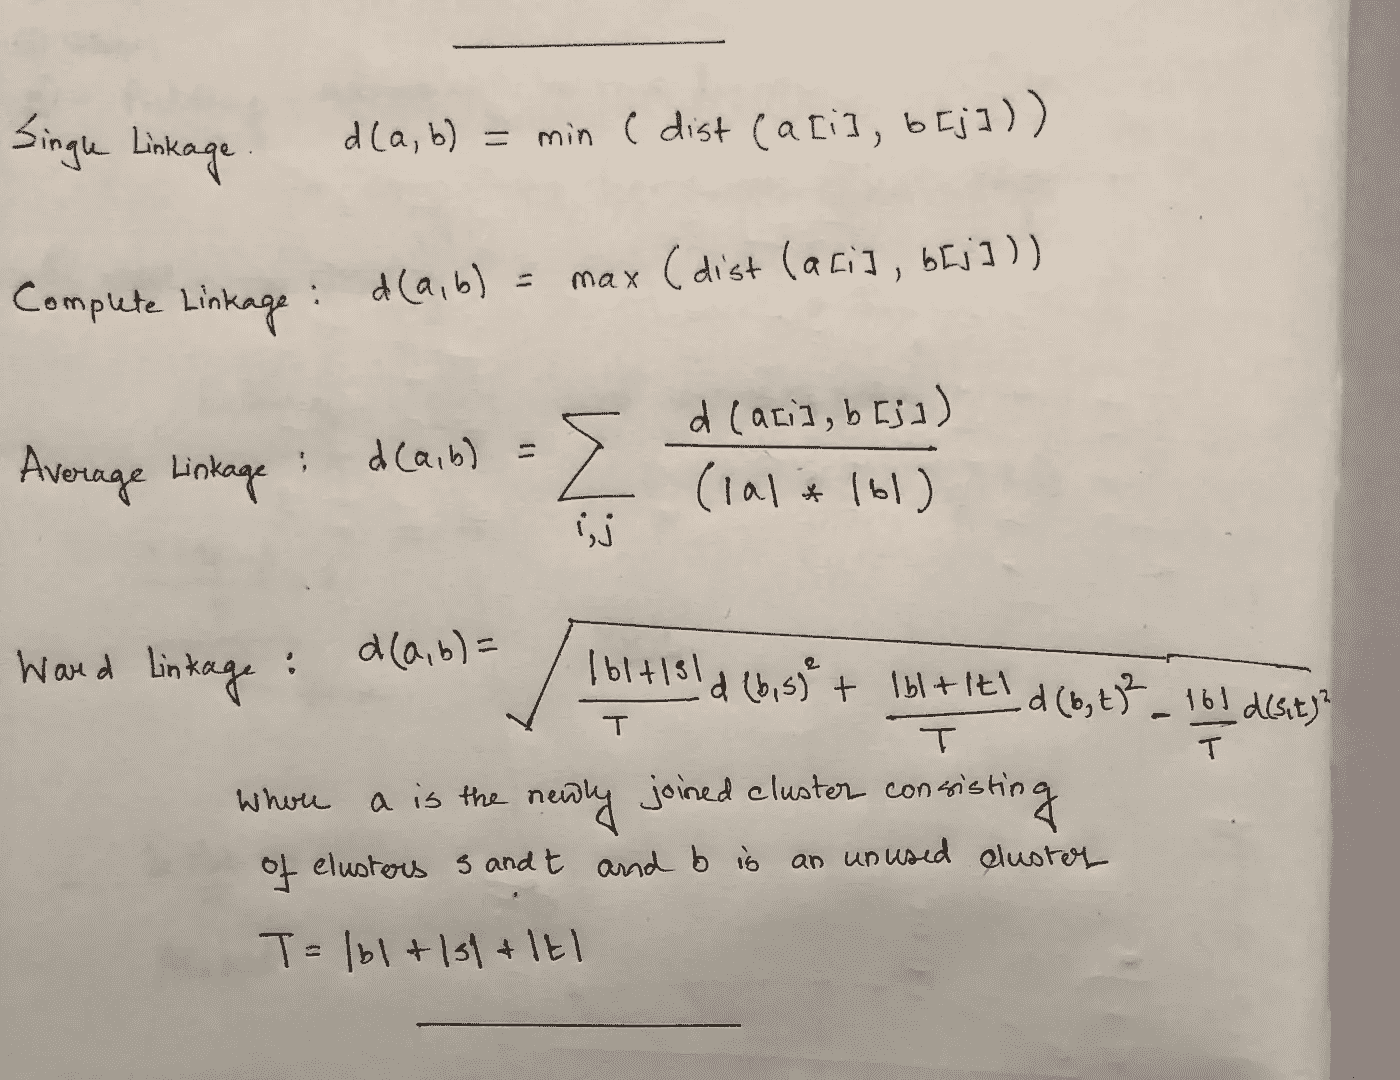 Single Linkage. d(a,b) = min ( dist (a[i], b[j]))
Compute Linkage : d(a,b) = max ( dist (a[i], b[j]))
Average Linkage : d(a,b) = ∑_{i,j} d(a[i], b[j]) / (|a| * |b|)
Ward Linkage : d(a,b) = √( |b|+|s| / T d(b,s)² + |b|+|t| / T d(b,t)² - |b| / T d(s,t)² )
where a is the newly joined cluster consisting
of clusters s and t and b is an unused cluster
T = |b| + |s| + |t|